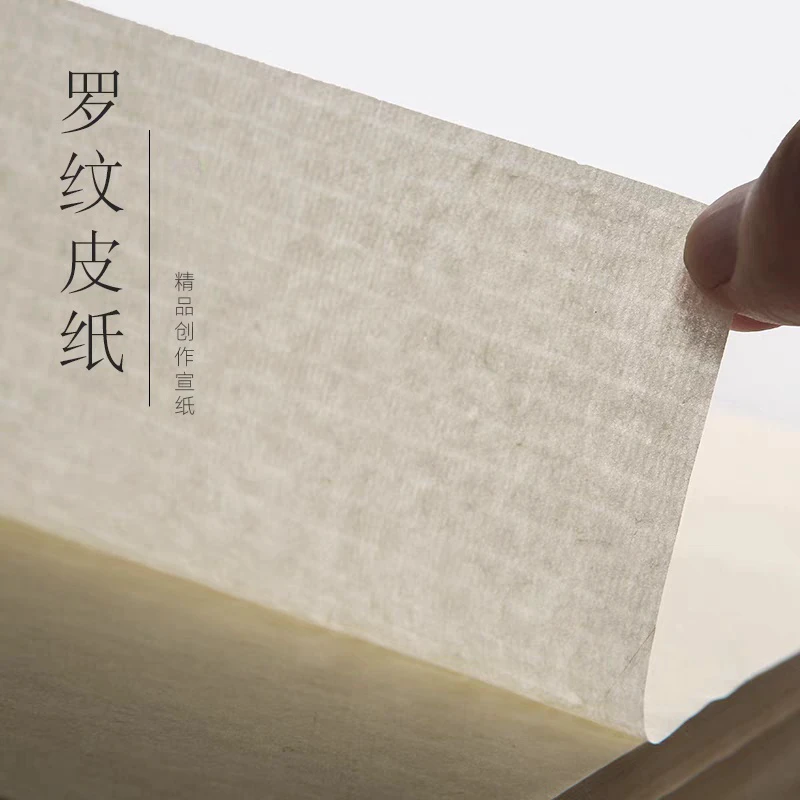 罗纹皮纸
精品创作宣纸